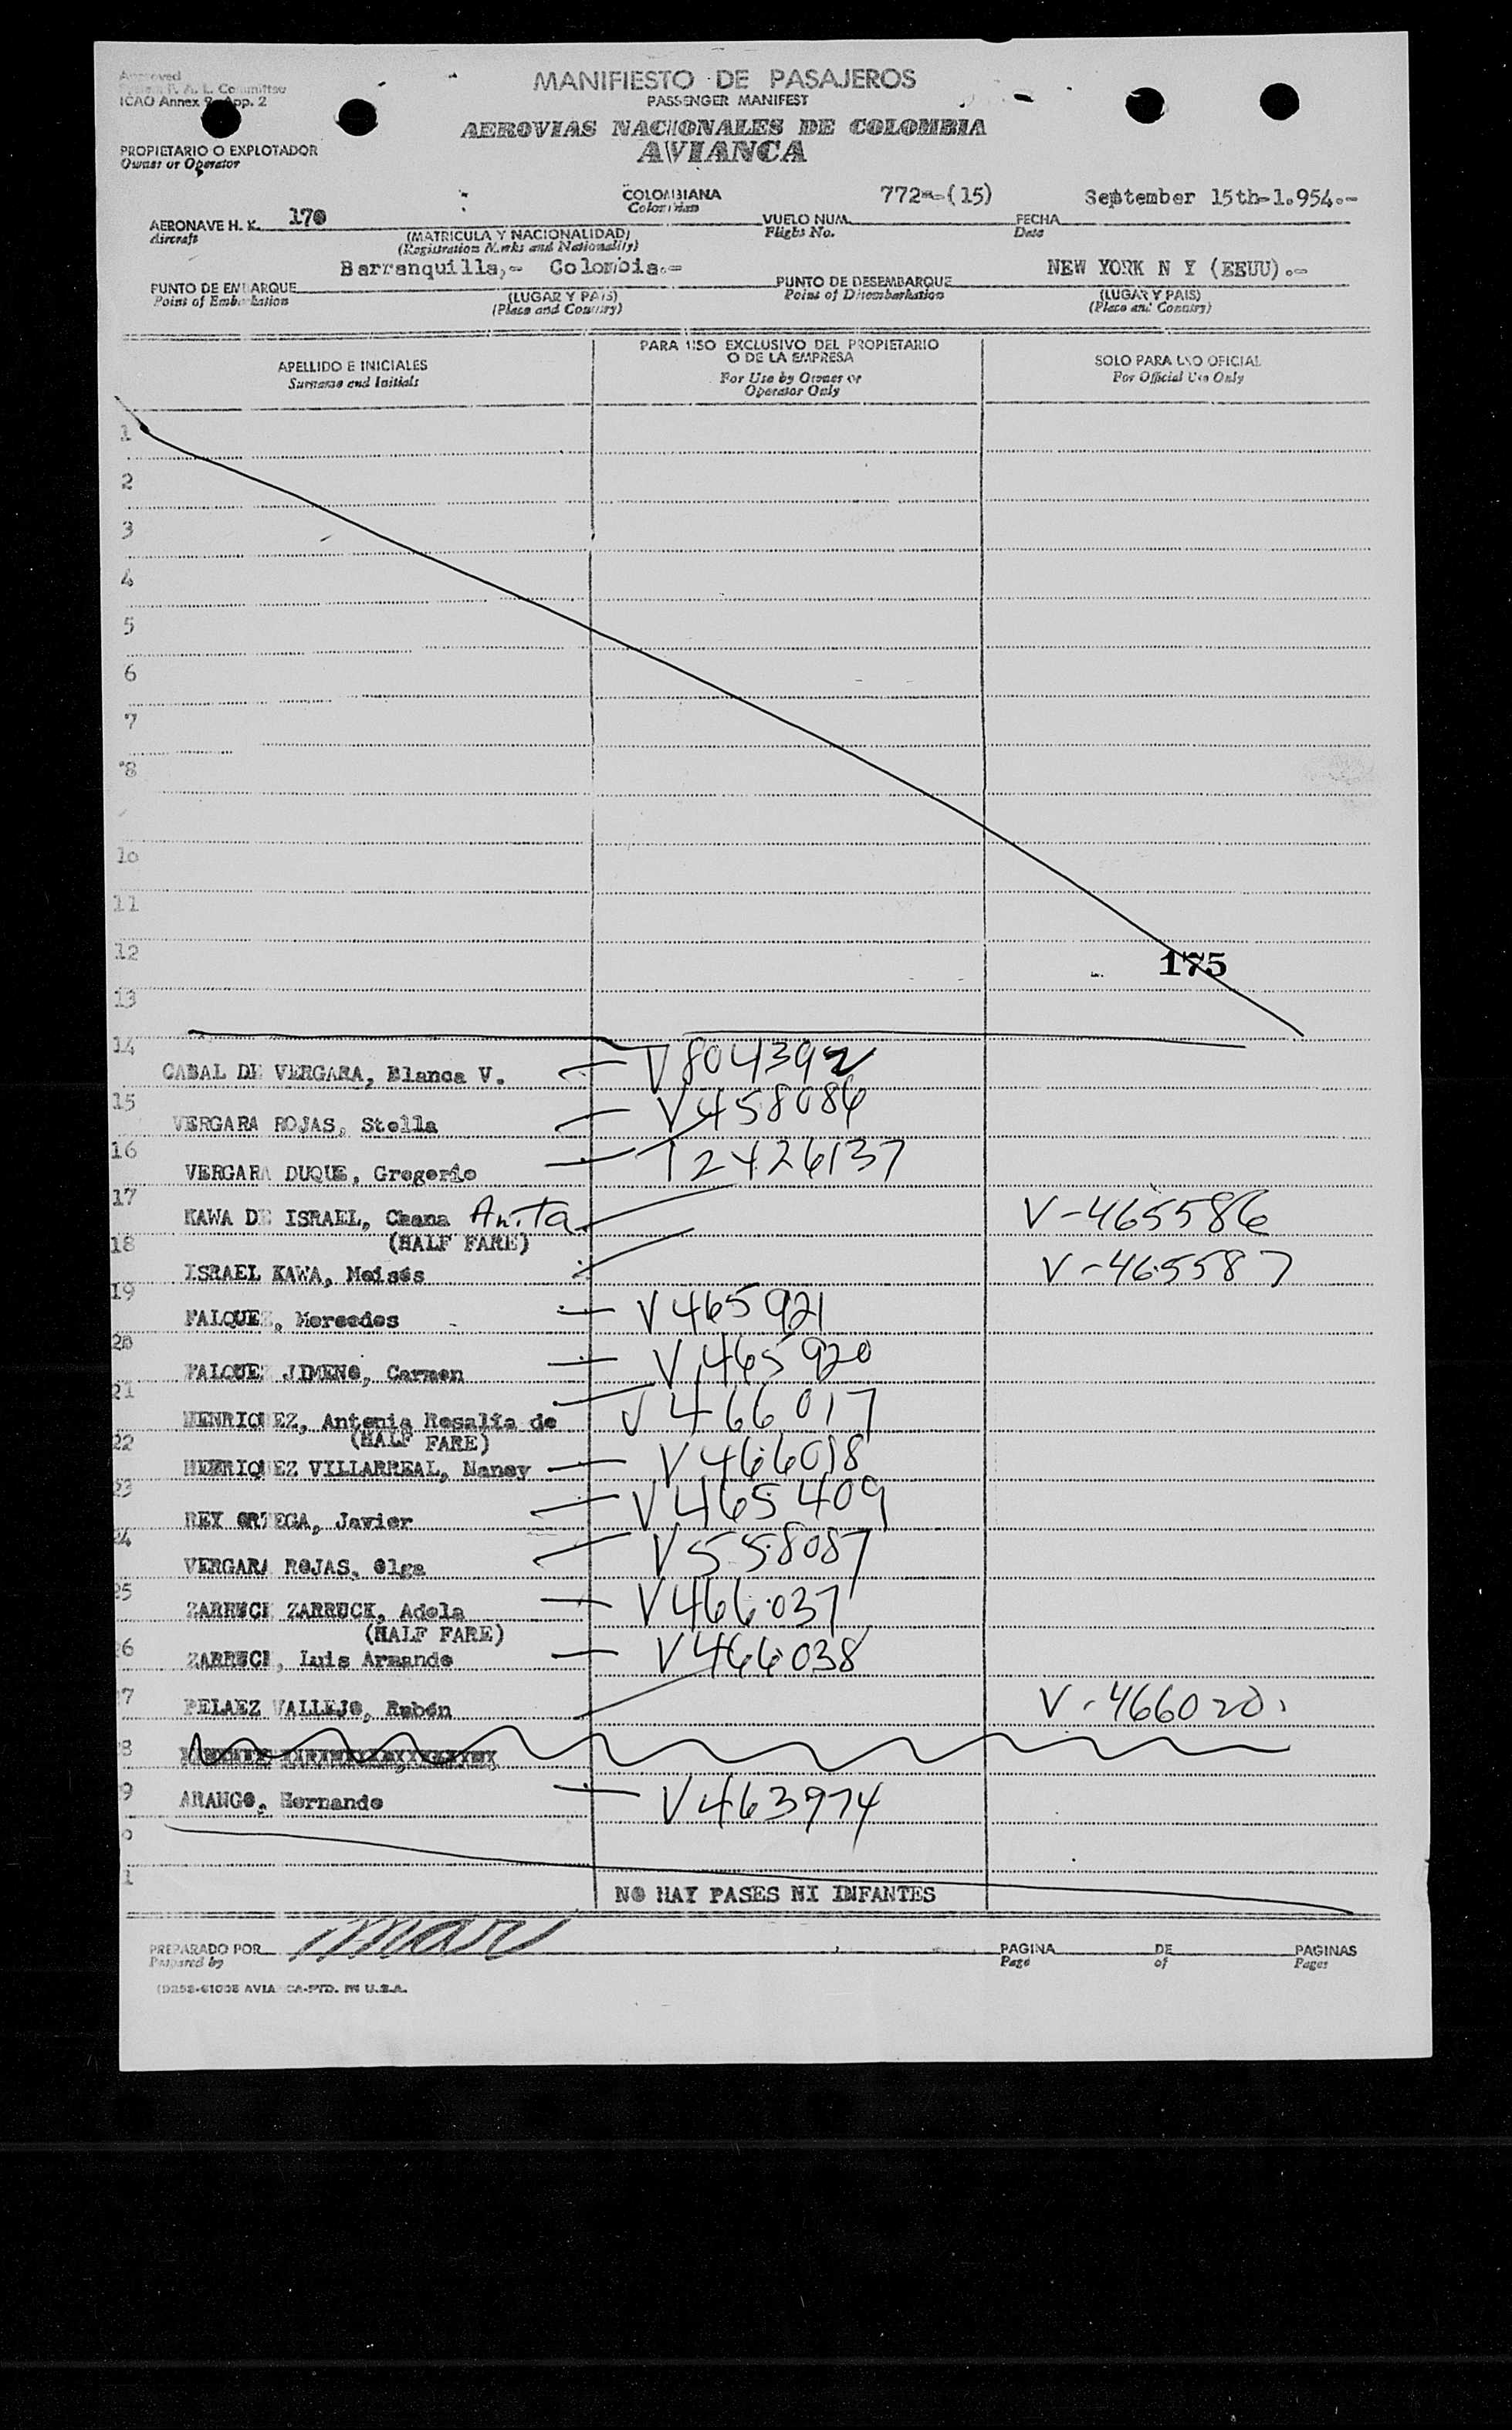 Approved
ICAO Annex 9, App. 2
MANIFIESTO DE PASAJEROS
PASSENGER MANIFEST
AEROVIAS NACIONALES DE COLOMBIA
AVIANCA
PROPIETARIO O EXPLOTADOR
Owner or Operator
AERONAVE H. K. 170
Aircraft
COLOMBIANA
Colombian
(MATRICULA Y NACIONALIDAD)
(Registration Marks and Nationality)
VUELO NUM. 772--(15)
Flight No.
FECHA September 15th-1.954.-
Date
PUNTO DE EMBARQUE Barranquilla,- Colombia.-
Point of Embarkation
(LUGAR Y PAIS)
(Place and Country)
PUNTO DE DESEMBARQUE NEW YORK N Y (EEUU).-
Point of Disembarkation
(LUGAR Y PAIS)
(Place and Country)
APELLIDO E INICIALES
Surname and Initials
PARA USO EXCLUSIVO DEL PROPIETARIO
O DE LA EMPRESA
For Use by Owner or
Operator Only
SOLO PARA USO OFICIAL
For Official Use Only
1
2
3
4
5
6
7
8
10
11
12
175
13
14
CABAL DE VERGARA, Blanca V. V804392
15
VERGARA ROJAS, Stella V458086
16
VERGARA DUQUE, Gregorio T2426137
17
KAWA DE ISRAEL, Chana Anita V-465586
18 (HALF FARE)
ISRAEL KAWA, Moisés V-465587
19
FALQUEZ, Mercedes V465921
20
FALQUEZ JIMENO, Carmen V465920
21
HENRIQUEZ, Antonia Rosalía de V466017
22 (HALF FARE)
HENRIQUEZ VILLARREAL, Nancy V466018
23
REY ORTEGA, Javier V465409
4
VERGARA ROJAS, Olga V558087
25
ZARRUCK ZARRUCK, Adela V466037
(HALF FARE)
6
ZARRUCK, Luis Armando V466038
7
PELAEZ VALLEJO, Rubén V-466020.
8
9
ARANGO, Hernando V463974
0
1
NO HAY PASES NI INFANTES
PREPARADO POR
Prepared by
PAGINA DE PAGINAS
Page of Pages
AVIANCA-PTD. IN U.S.A.